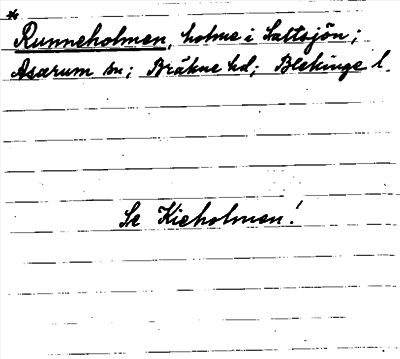 * Runneholmen, holme i Saltsjön;
Asarum sn; Bräkne hd; Blekinge l.
Se Kieholmen!